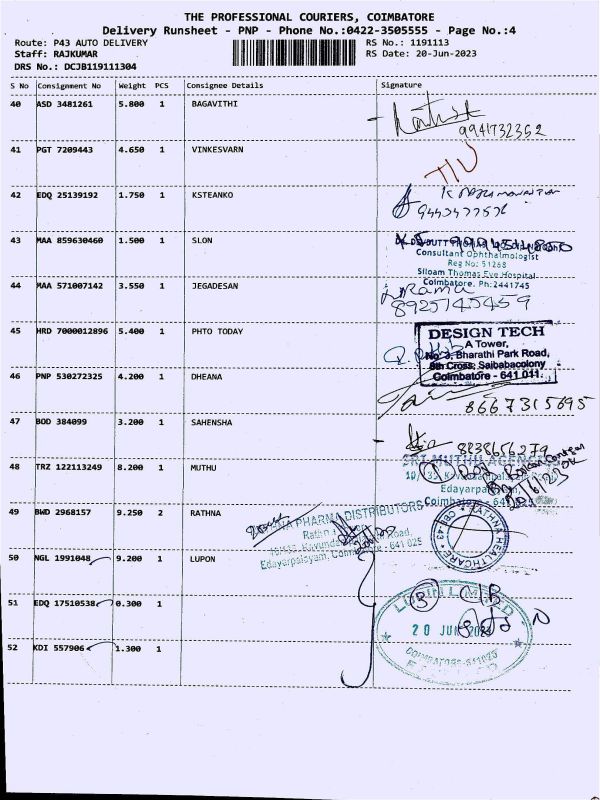 THE PROFESSIONAL COURIERS, COIMBATORE
Delivery Runsheet - PNP - Phone No.:0422-3505555 - Page No.:4
Route: P43 AUTO DELIVERY
Staff: RAJKUMAR
DRS No.: DCJB119111304
RS No.: 1191113
RS Date: 20-Jun-2023
S No Consignment No Weight PCS Consignee Details Signature
40 ASD 3481261 5.800 1 BAGAVITHI
9941732352
41 PGT 7209443 4.650 1 VINKESVARN
42 EDQ 25139192 1.750 1 KSTEANKO
43 MAA 859630460 1.500 1 SLON
Consultant Ophthalmologist
Reg No: 51268
Siloam Thomas Eye Hospital
Coimbatore. Ph:2441745
44 MAA 571007142 3.550 1 JEGADESAN
Rama
8925145459
45 HRD 7000012896 5.400 1 PHTO TODAY
DESIGN TECH
A Tower,
No 3, Bharathi Park Road,
8th Cross, Saibabacolony
Coimbatore - 641 011.
46 PNP 530272325 4.200 1 DHEANA
8667315695
47 BOD 384099 3.200 1 SAHENSHA
8838656279
48 TRZ 122113249 8.200 1 MUTHU
SRI MUTHU AGENCIES
Edayarpalayam,
Coimbatore - 641 025
49 BWD 2968157 9.250 2 RATHNA
PHARMA DISTRIBUTORS
Road,
Edayarpalayam, Coimbatore - 641 025
RATHNA HEALTHCARE
CBE-43
50 NGL 1991048 9.200 1 LUPON
51 EDQ 17510538 0.300 1
LUPIN LIMITED
20 JUN 2023
COIMBATORE-641025
52 KDI 557906 1.300 1